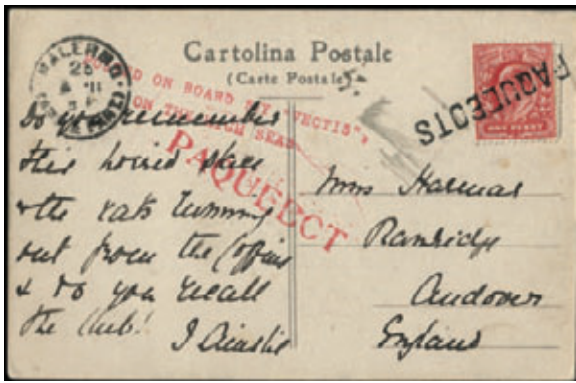 Cartolina Postale
(Carte Postale)
PALERMO
25
4 11
POSTED ON BOARD S.Y. "VECTIS",
ON THE HIGH SEAS
PAQUEBOT
PAQUEBOTS
ONE PENNY
Do you remember
this horrid place
& the rats running
out from the Coffins
& do you recall
the Club!
J Ainslie
Miss Harmar
Ramridge
Andover
England